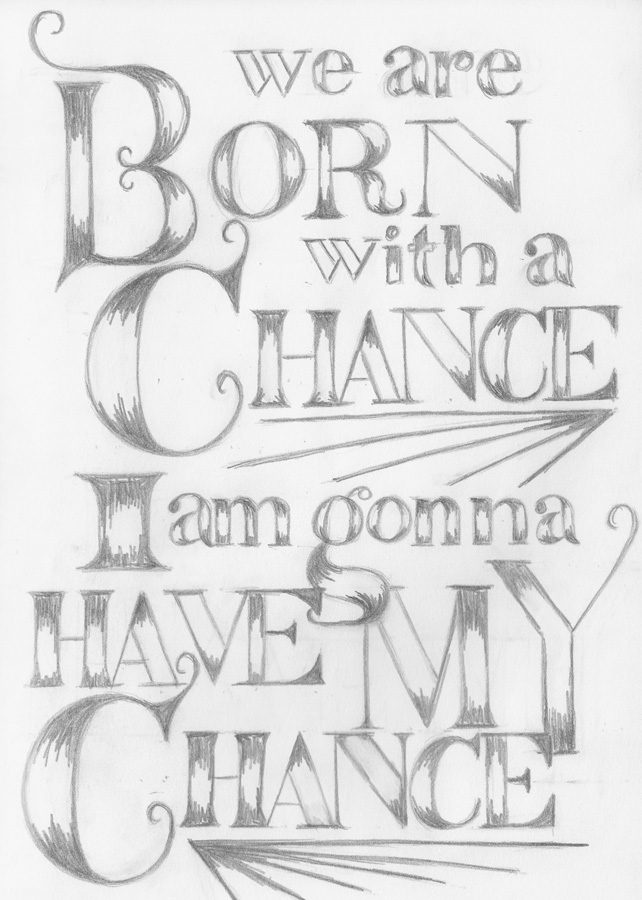 we are
BORN
with a
CHANCE
I am gonna
HAVE MY
CHANCE